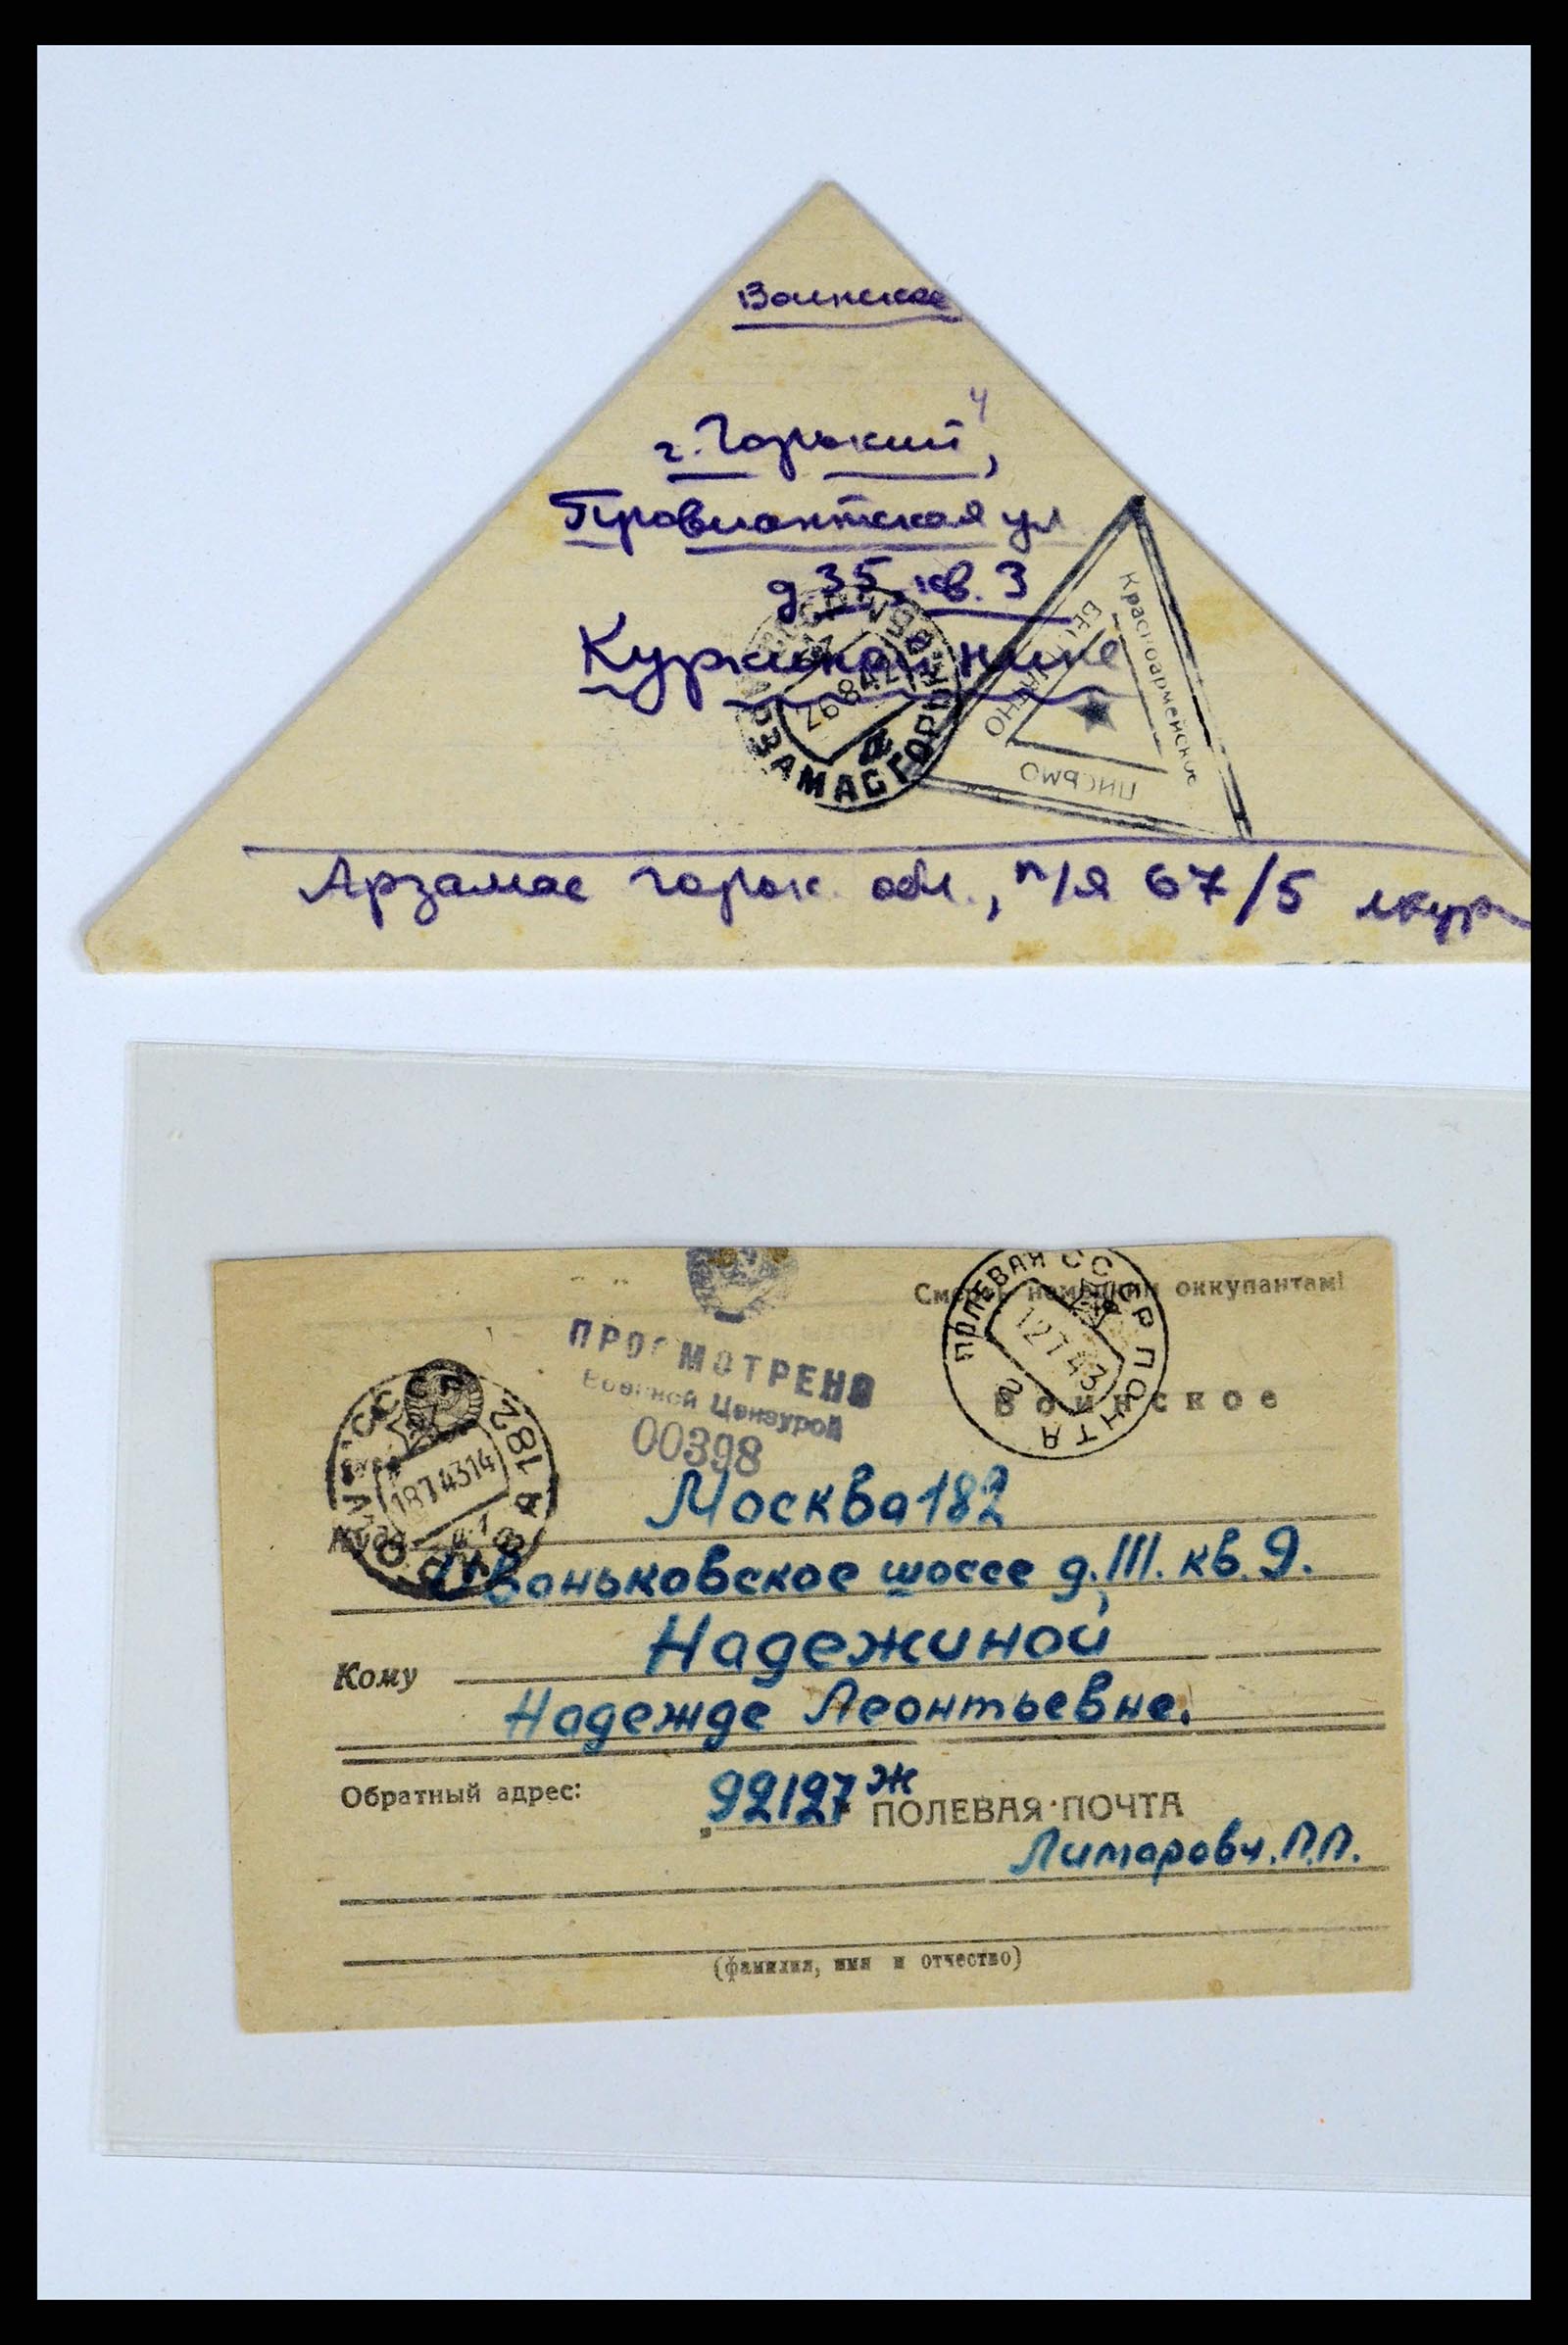 Воинское
г. Горький, 4
Провиантская ул
д 35, кв. 3
Нине
26 8 42
АРЗАМАС ГОРЬК.
Красноармейское
БЕСПЛАТНО
Арзамас горьк. обл., п/я 67/5
Смерть немецким оккупантам!
ПОЛЕВАЯ ПОЧТА
СССР
12 7 43
Воинское
ПРОСМОТРЕНО
Военной Цензурой
00398
МОСКВА 182
СССР
18 7 43 14
Куда
Москва 182
Иваньковское шоссе д. III. кв. 9.
Кому
Надежиной
Надежде Леонтьевне.
Обратный адрес:
92127 ж ПОЛЕВАЯ ПОЧТА
П.П.
(фамилия, имя и отчество)